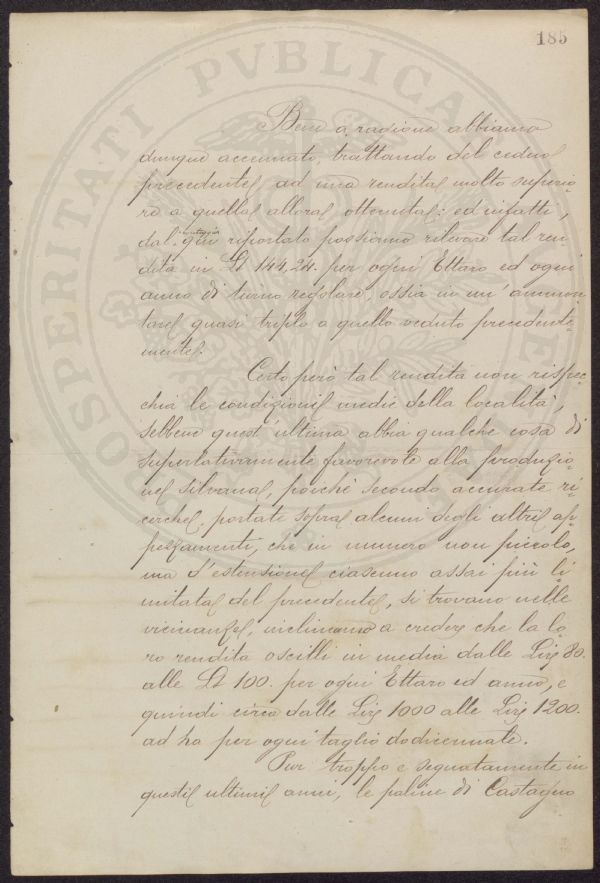 185
PROSPERITATI PVBLICAE
Bene a ragione abbiamo
dunque accennato, trattando del ceduo
precedente, ad una rendita molto superio-
re a quella allora ottenuta: ed infatti,
dal conteggio qui riportato possiamo rilevare tal ren-
dita in Lt 144.24. per ogni Ettaro ed ogni
anno di turno regolare, ossia in un'ammon-
tare quasi triplo a quello veduto precedente-
mente.
Certo però tal rendita non rispec-
chia le condizioni medie della località,
sebbene quest'ultima abbia qualche cosa di
superlativamente favorevole alla produzio-
ne silvana, poichè secondo accurate ri-
cerche, portate sopra alcuni degli altri ap-
pezzamenti, che in numero non piccolo,
ma d'estensione ciascuno assai più li-
mitata del precedente, si trovano nelle
vicinanze, incliniamo a credere che la lo-
ro rendita oscilli in media dalle Lire 80.
alle Lt 100. per ogni Ettaro ed anno, e
quindi circa dalle Lire 1000 alle Lire 1200.
ad ha per ogni taglio dodicennale.
Pur troppo e segnatamente in
questi ultimi anni, le paline di Castagno